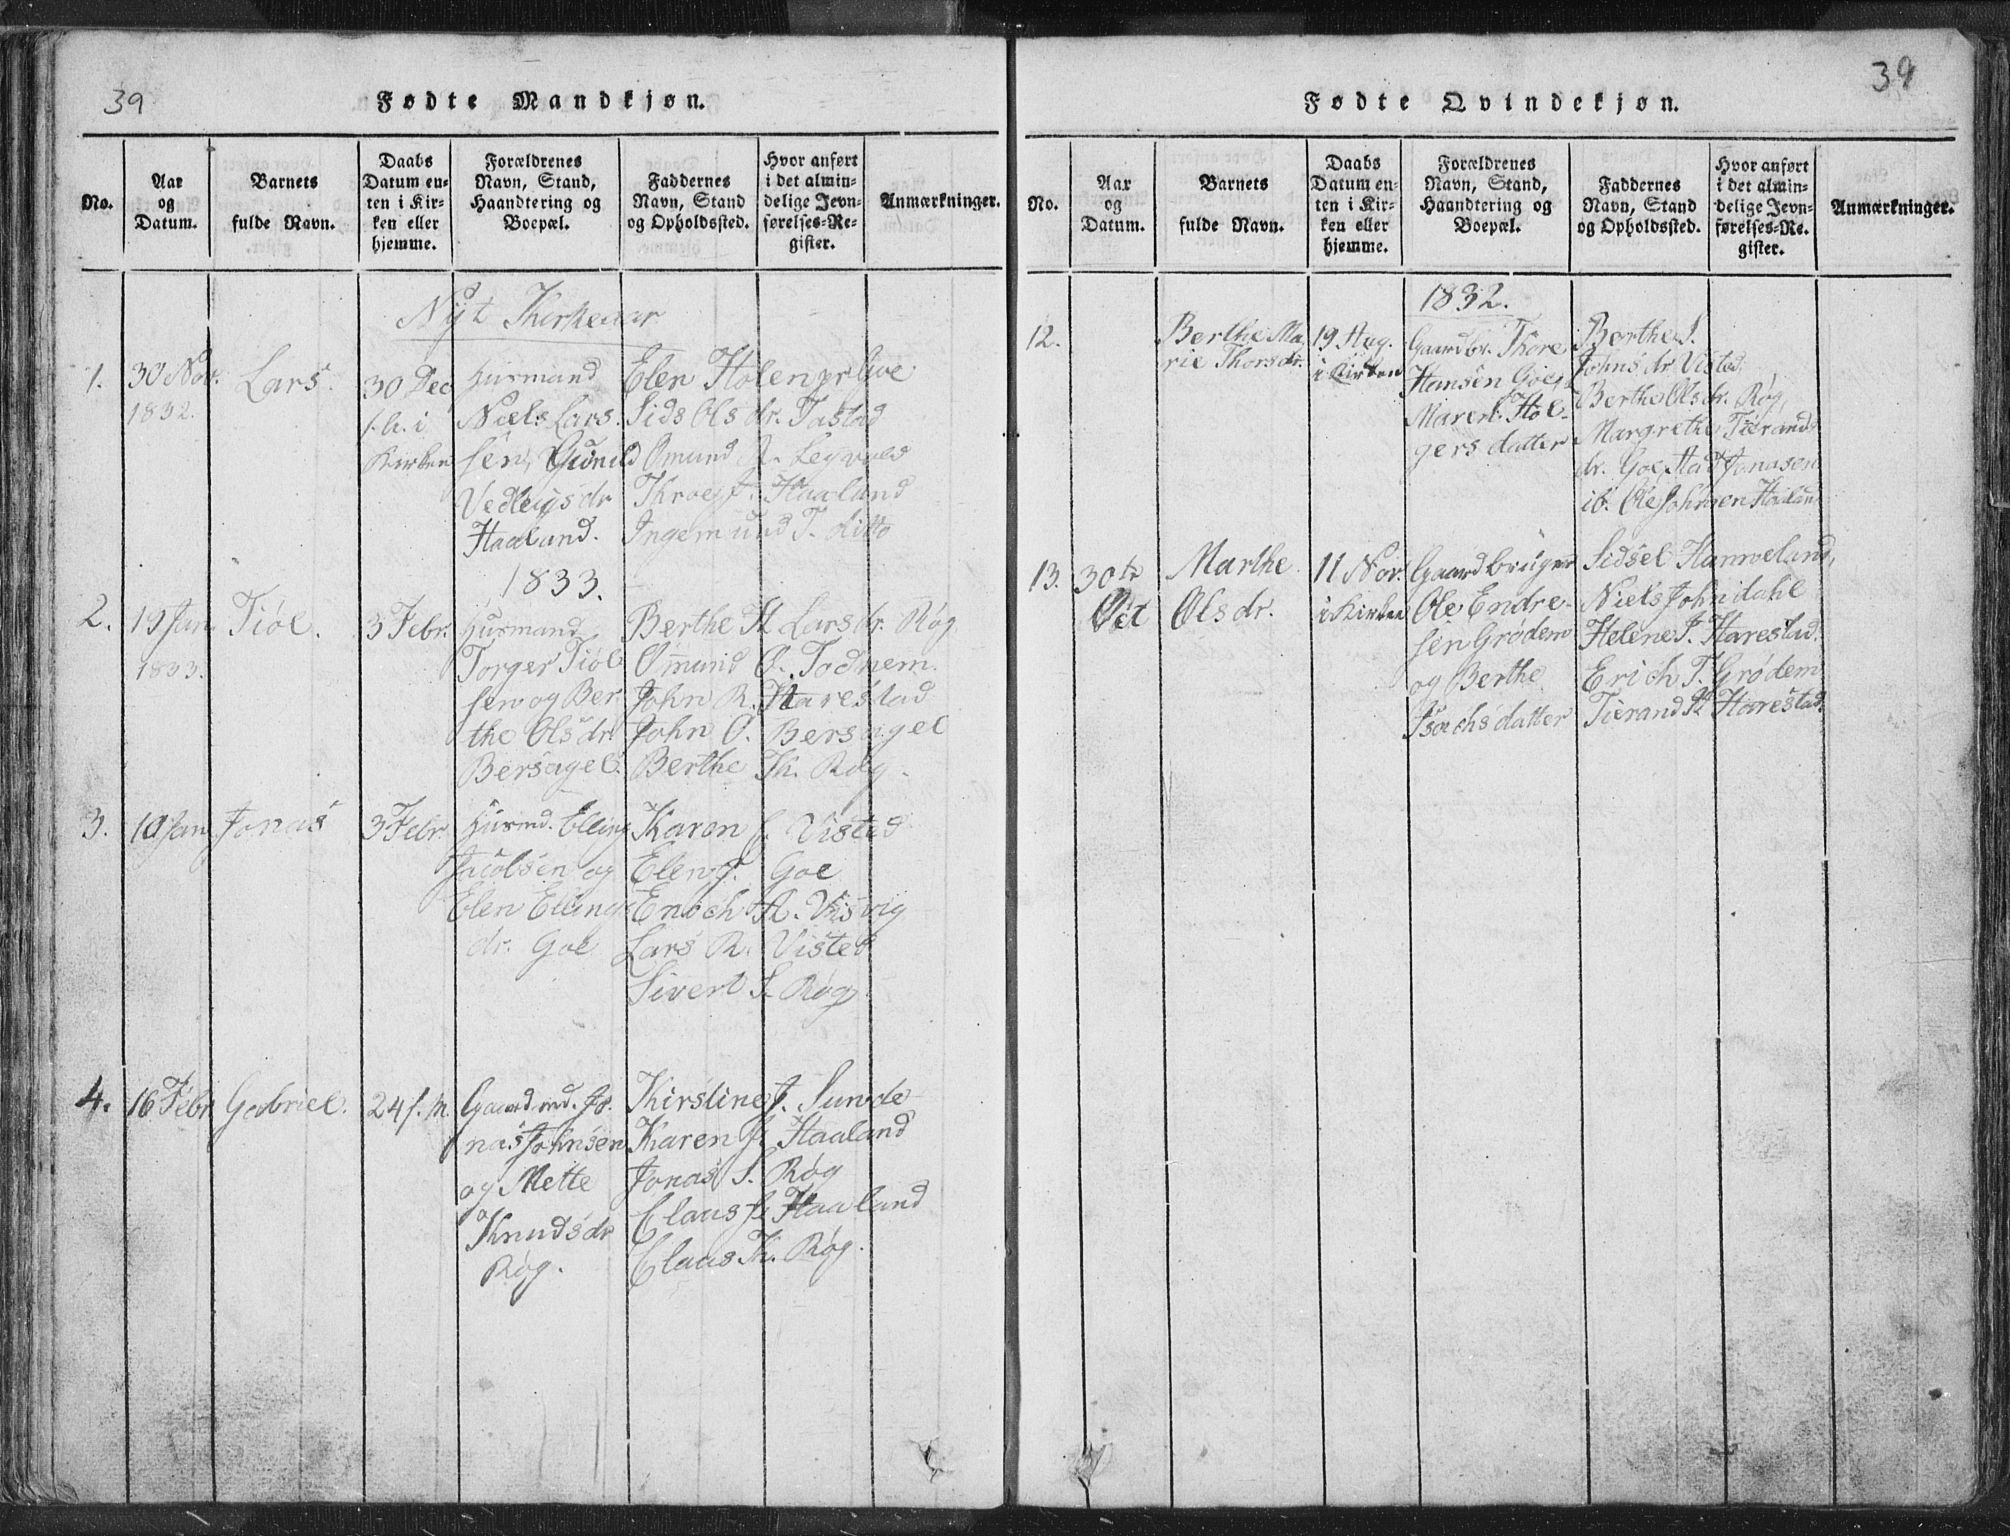 39
Fødte Mandkjøn.
No.
Aar
og
Datum.
Barnets
fulde Navn.
Daabs
Datum en-
ten i Kir-
ken eller
hjemme.
Forældrenes
Navn, Stand,
Haandtering og
Boepæl.
Faddernes
Navn, Stand
og Opholdssted.
Hvor anført
i det almin-
delige Jevn-
førelses-Re-
gister.
Anmærkninger.
Nyt Kirkeaar
1.
30 Nov.
1832.
Lars.
30 Dec
i
Kirken
Husmand
Niels Lars.
sen, Gunild
Vedleigsdr
Haaland.
Elen Holen
Sids Olsdr. Tastad
Omund
Haaland
Ingemund T. ditto
1833.
2.
19 Jan
1833.
Tiøl.
3 Febr.
Husmand
Torger Tiøl
sen og Ber
the Olsdr
Bersagel.
Berthe H Larsdr. Røg
Omund O. Todnem
John R. Harestad
John O. Bersagel
Berthe Th. Røg.
3.
10 Jan
Jonas
3 Febr.
Husmd. Elling
Jacobsen og
Elen Ellings
dr. Goe
Karen J Vistad
Elen J. Goe
Enoch A. Viśvig
Lars R. Visted
Sivert S. Røg.
4.
16 Febr
Gabriel.
24 f. M.
Gaardmd. Jo
nas Johnsen
og Mette
Knudsdr
Røg.
Kirstine J. Sunde
Karen J. Haaland
Jonas S. Røg
Claus J. Haaland
Claus Th. Røg.
39
Fødte Qvindekjøn.
No.
Aar
og
Datum.
Barnets
fulde Navn.
Daabs
Datum en-
ten i Kir-
ken eller
hjemme.
Forældrenes
Navn, Stand,
Haandtering og
Boepæl.
Faddernes
Navn, Stand
og Opholdssted.
Hvor anført
i det almin-
delige Jevn-
førelses-Re-
gister.
Anmærkninger.
1832.
12.
Berthe Ma
rie Thorsdr.
19 Aug.
i Kirken
Gaardbr. Thore
Hansen Goe,
Maren Hol-
gersdatter
Berthe S.
Johnsdr. Visted
Berthe Olsdr. Røg,
Margrethe Tierands
dr. Goe Jonasen
ib. Ole Johnsen Haaland
13.
30te
Oct
Marthe
Olsdr.
11 Nov.
i Kirken
Gaardbruger
Ole Endre-
sen Grødem
og Berthe
Isachsdatter
Sidsel Hanneland,
Niels John dahl
Helene J. Harestad.
Erich T. Grødem
Tierand R. Harestad.